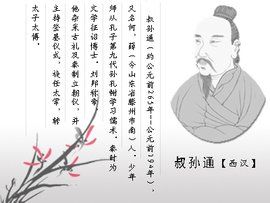 叔孙通(约公元前265年--公元前194年),
又名何,薛(今山东省滕州市南)人。少年
师从孔子第九代孙孔鲋学习儒术。秦时为
文学征诏博士,刘邦称帝,
他杂采古礼及秦制立朝仪,并
主持登基仪式。后任太常,转
太子太傅。
叔孙通【西汉】